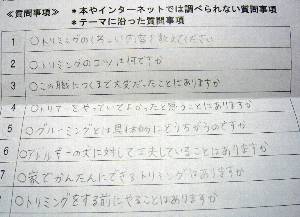 ≪質問事項≫ *本やインターネットでは調べられない質問事項
*テーマに沿った質問事項
1 ○トリミングの 教えてください
2 ○トリミングのコツは何ですか
3 ○この職につくまで大変だったことはありますか
4 ○トリマーをやっていてよかったと思うことはありますか
5 ○グルーミングとは具体的にどうちがうのですか
6 ○アレルギーの犬に対して工夫していることはありますか
7 ○家でかんたんにできるトリミングはありますか
○トリミングをする前にやることはありますか